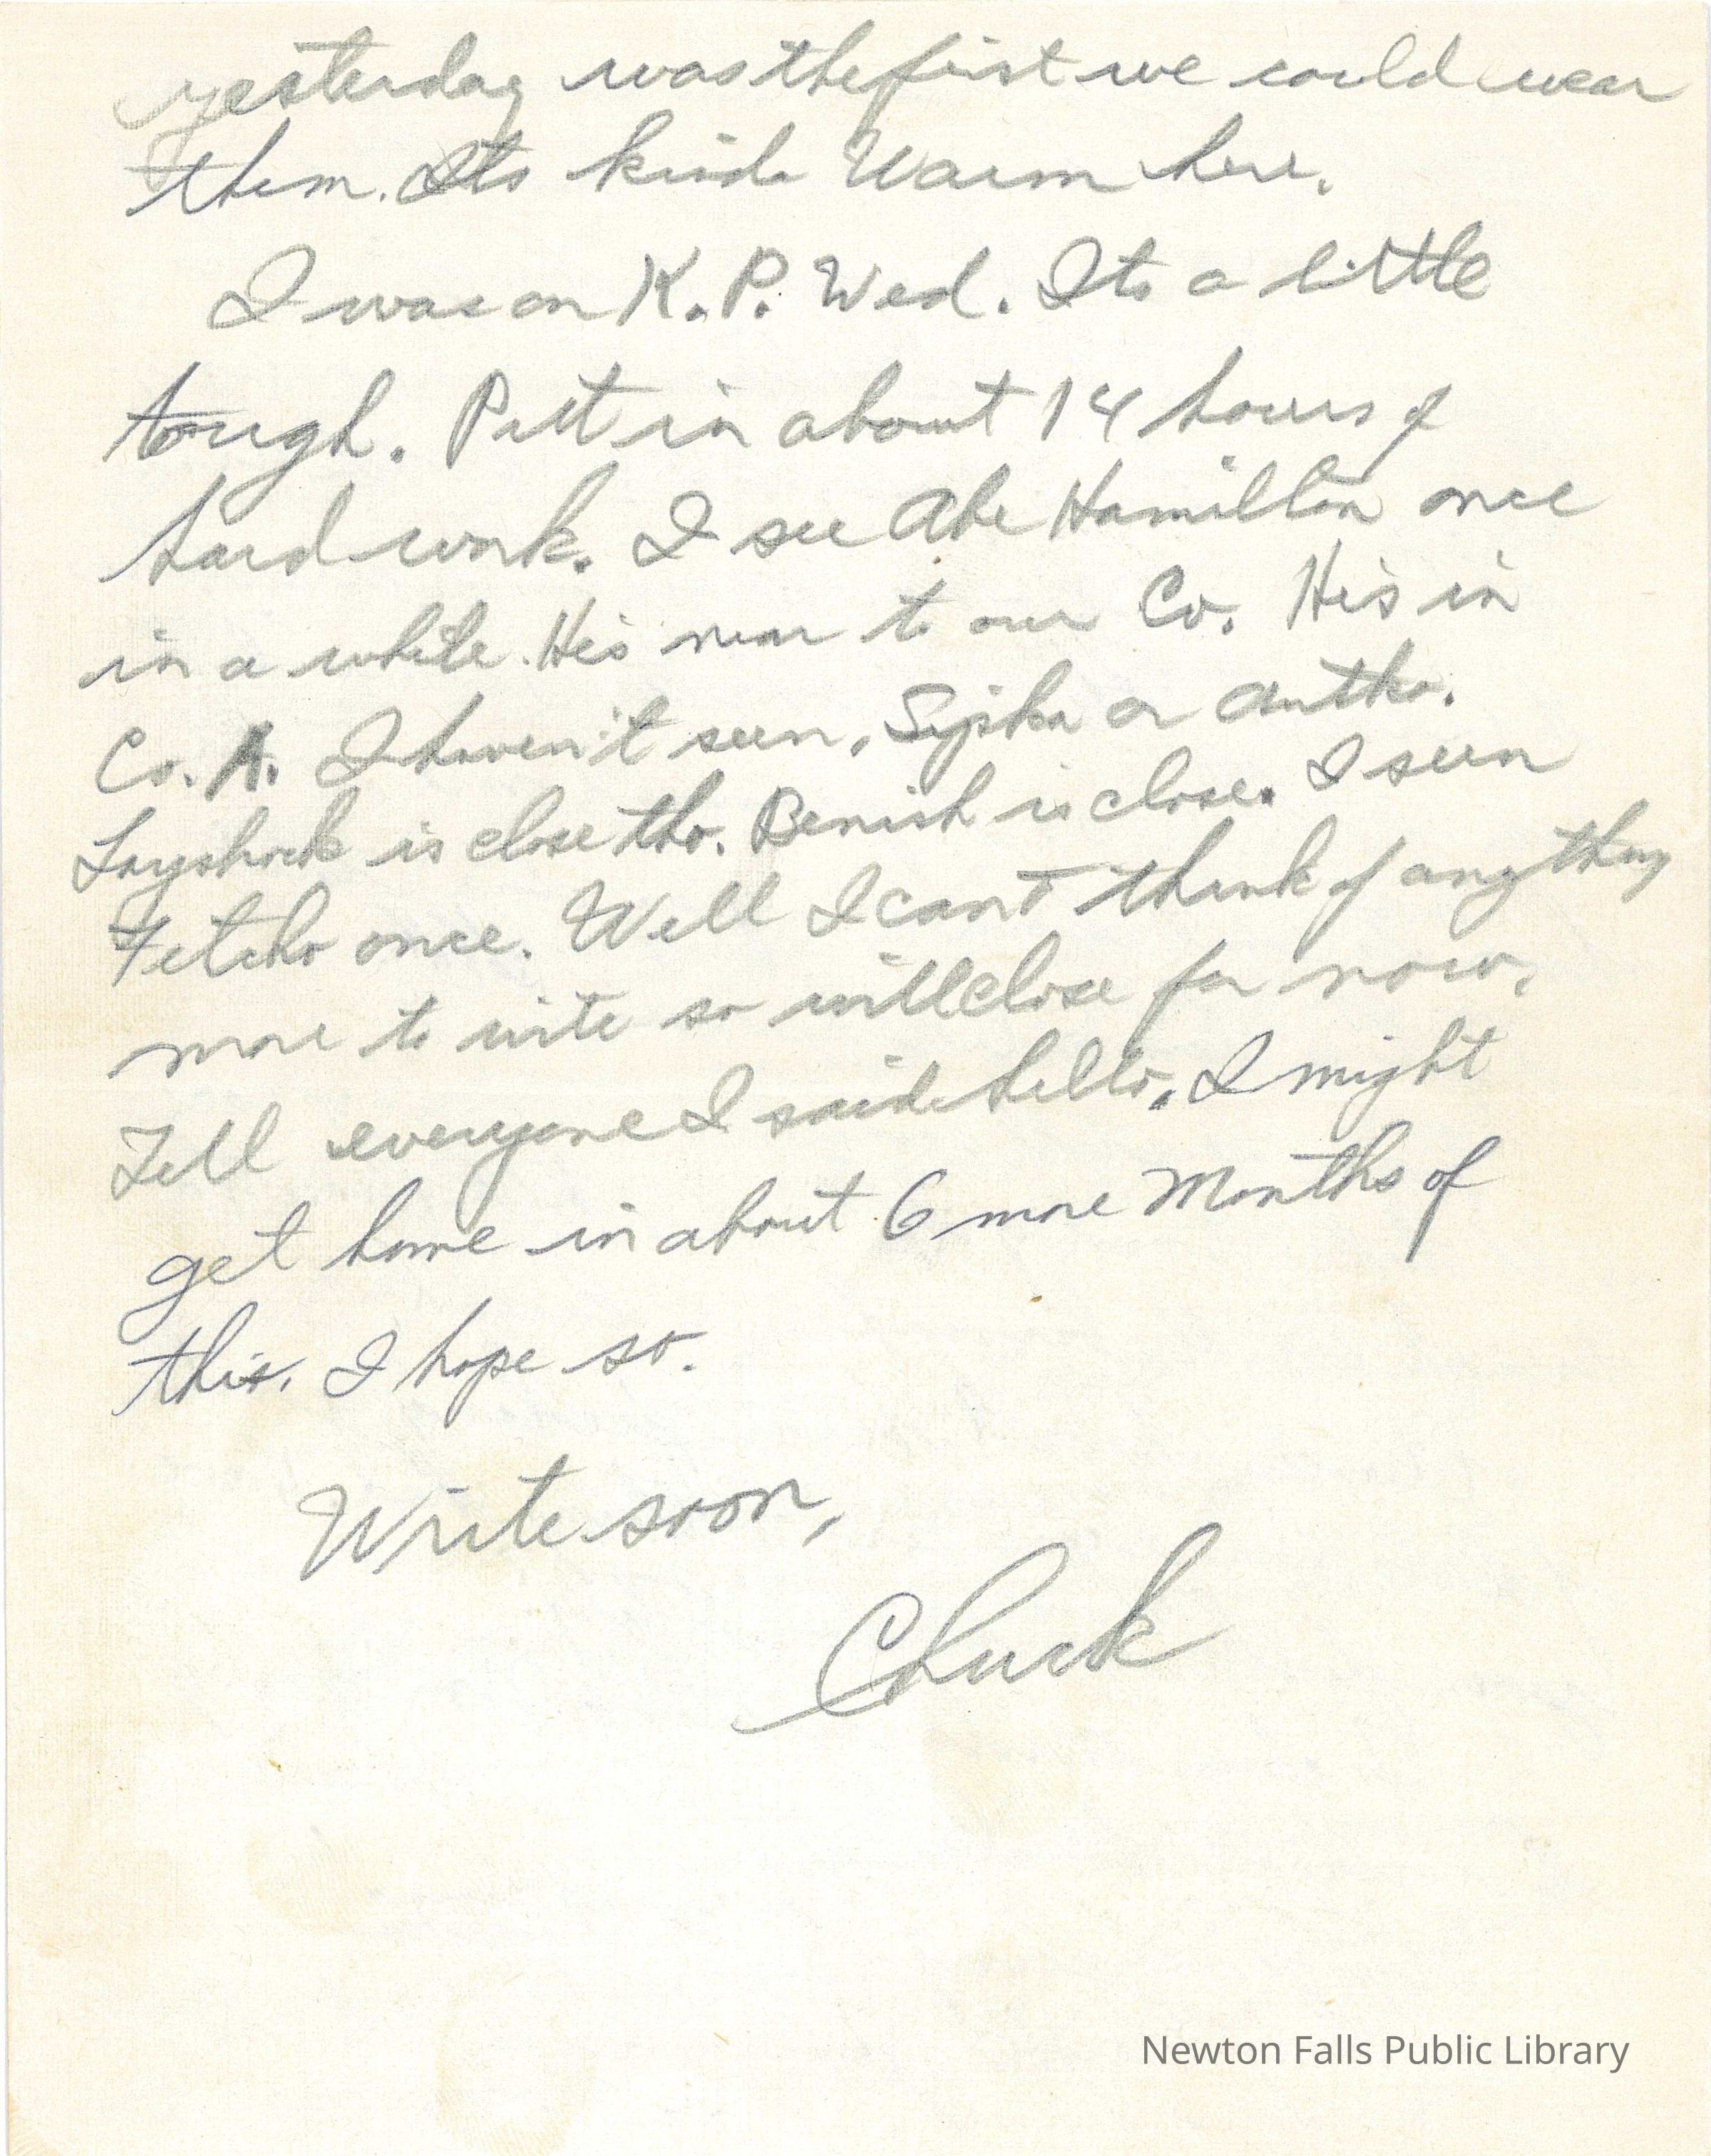 yesterday was the first we could wear
them. Its kinda Warm here.
I was on K.P. Wed. Its a little
tough. Put in about 14 hours of
hard work. I see Abe Hamilton once
in a while. He's near to our Co. He's in
Co. A. I haven't seen, Sypka or Antho.
Layshock is close tho. Benish is close. I seen
Fetcho once. Well I cant think of anything
more to write so will close for now.
Tell everyone I said hello. I might
get home in about 6 more Months of
this. I hope so.
Write soon,
Chuck
Newton Falls Public Library